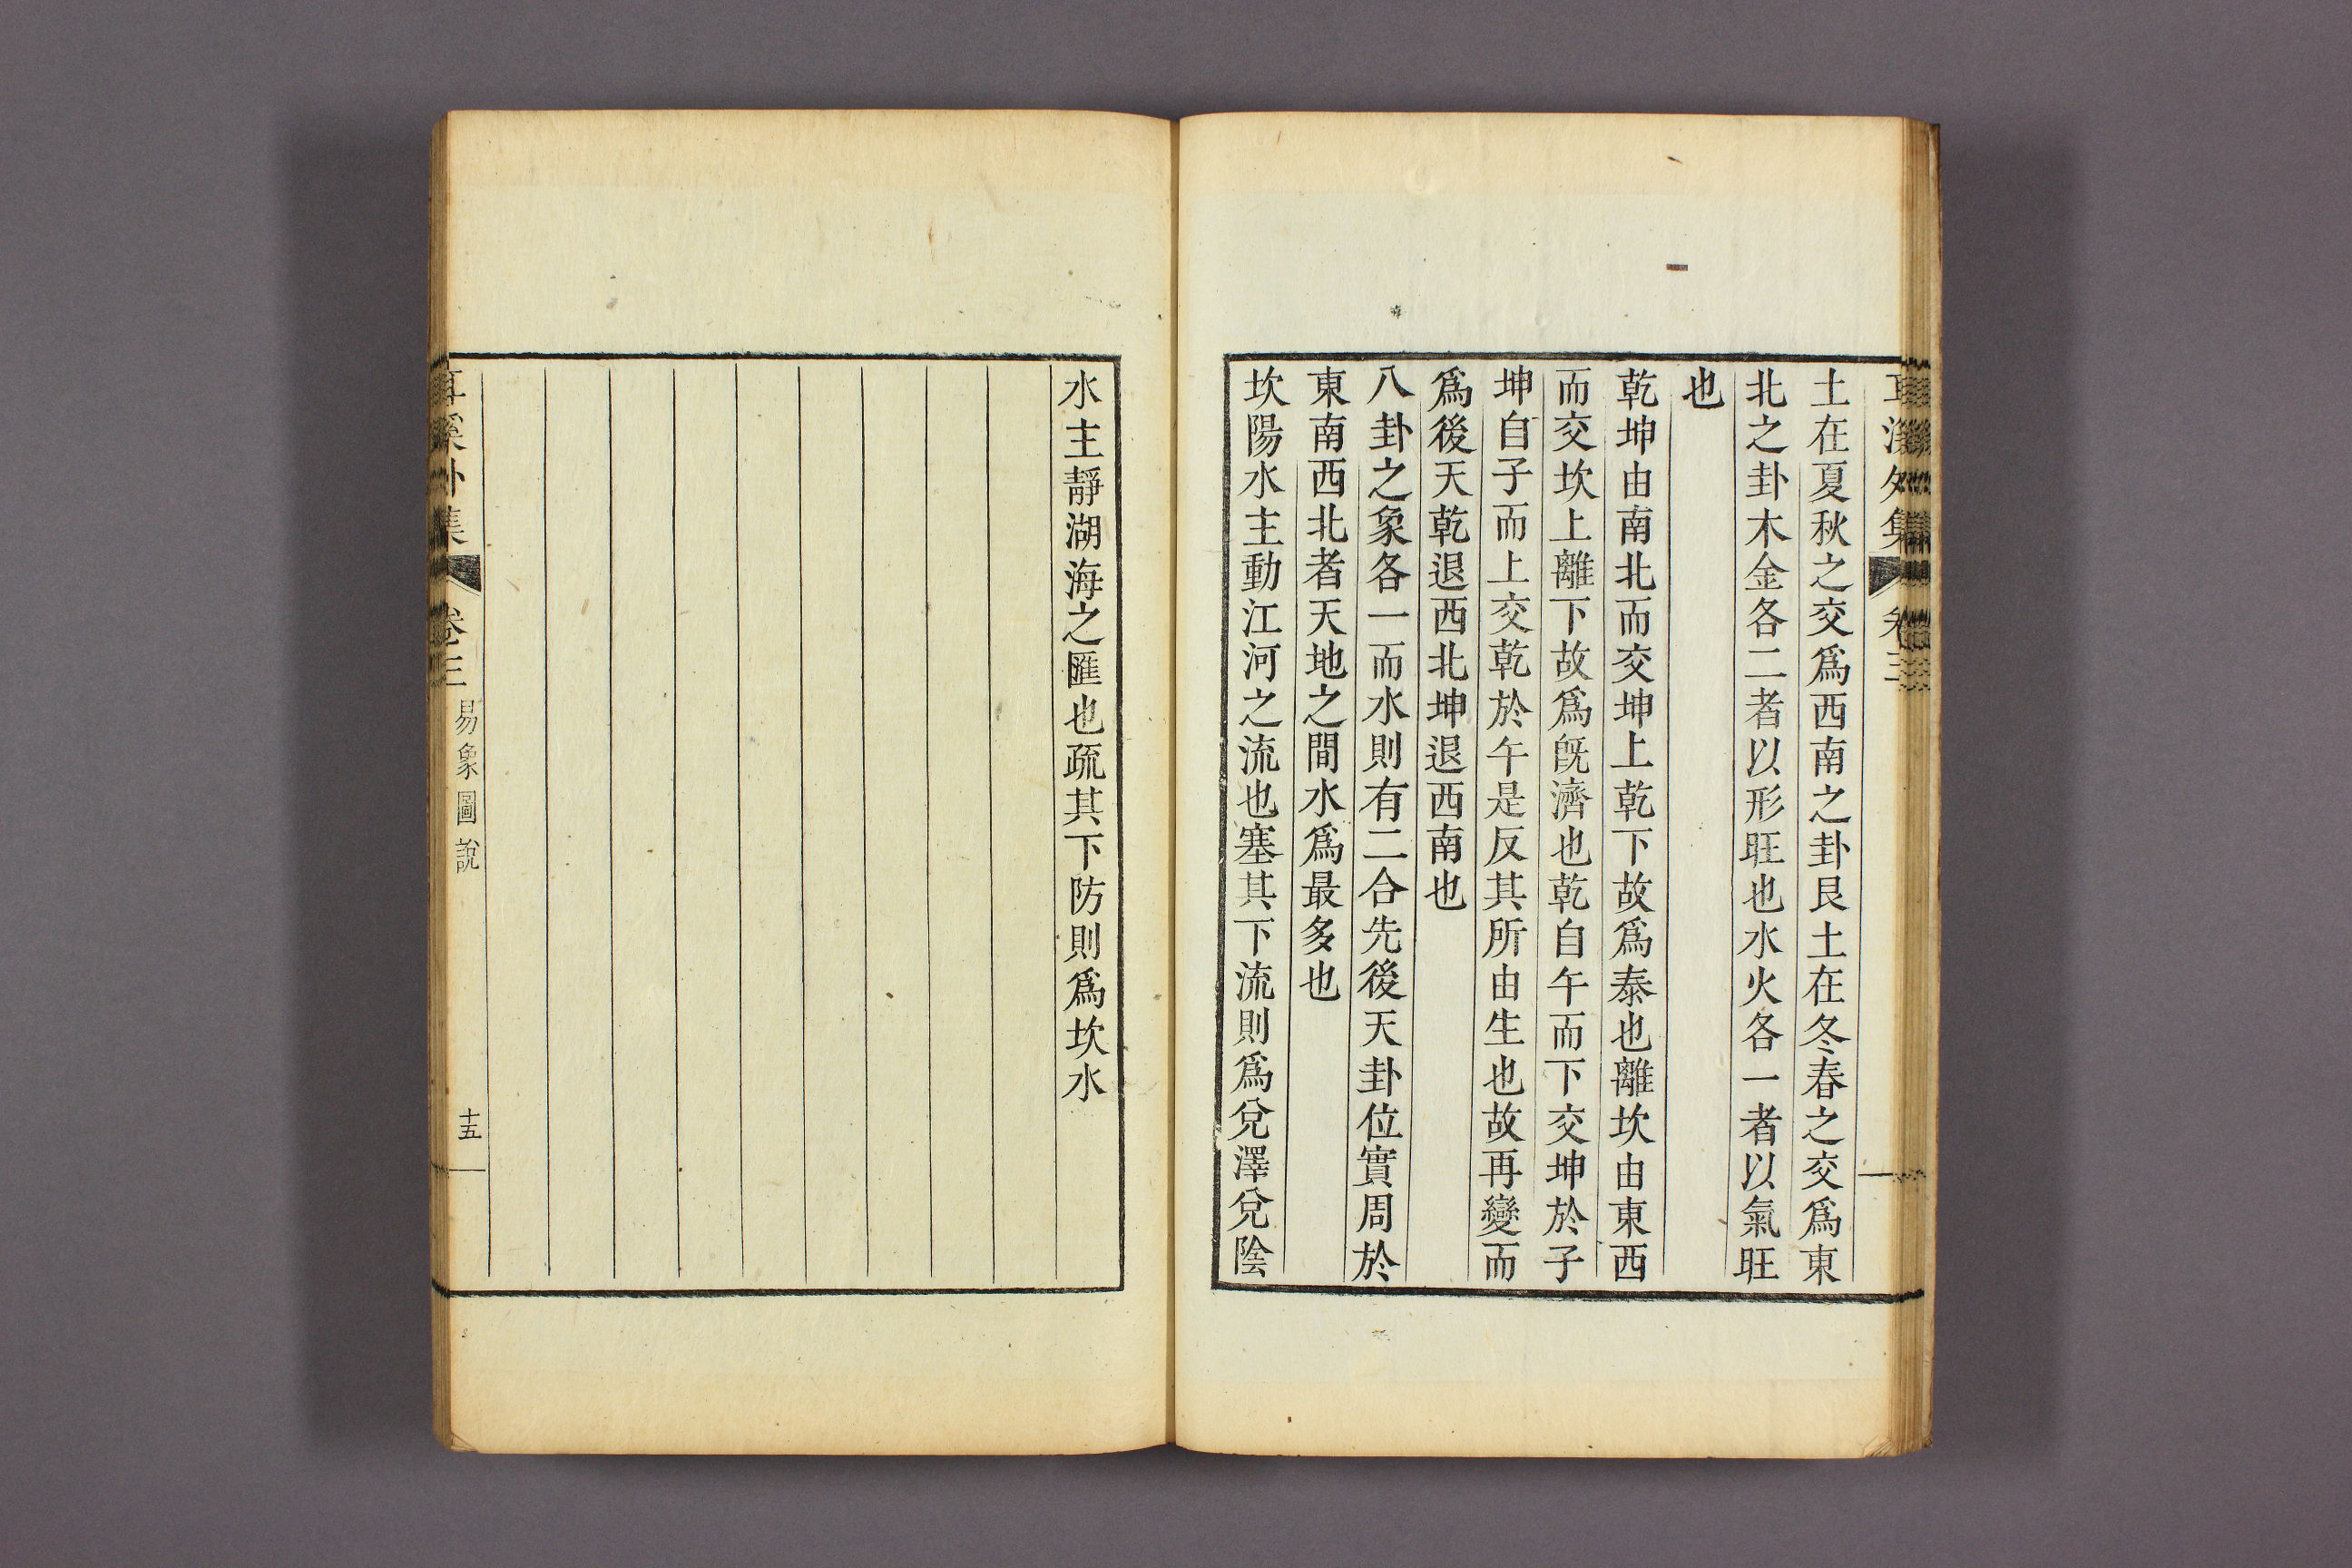 土在夏秋之交爲西南之卦艮土在冬春之交爲東
北之卦木金各二者以形旺也水火各一者以氣旺
也
乾坤由南北而交坤上乾下故爲泰也離坎由東西
而交坎上離下故爲旣濟也乾自午而下交坤於子
坤自子而上交乾於午是反其所由生也故再變而
爲後天乾退西北坤退西南也
八卦之象各一而水則有二合先後天卦位實周於
東南西北者天地之間水爲最多也
坎陽水主動江河之流也塞其下流則爲兌澤兌陰
水主靜湖海之匯也疏其下防則爲坎水
集 卷三 易象圖說 十五